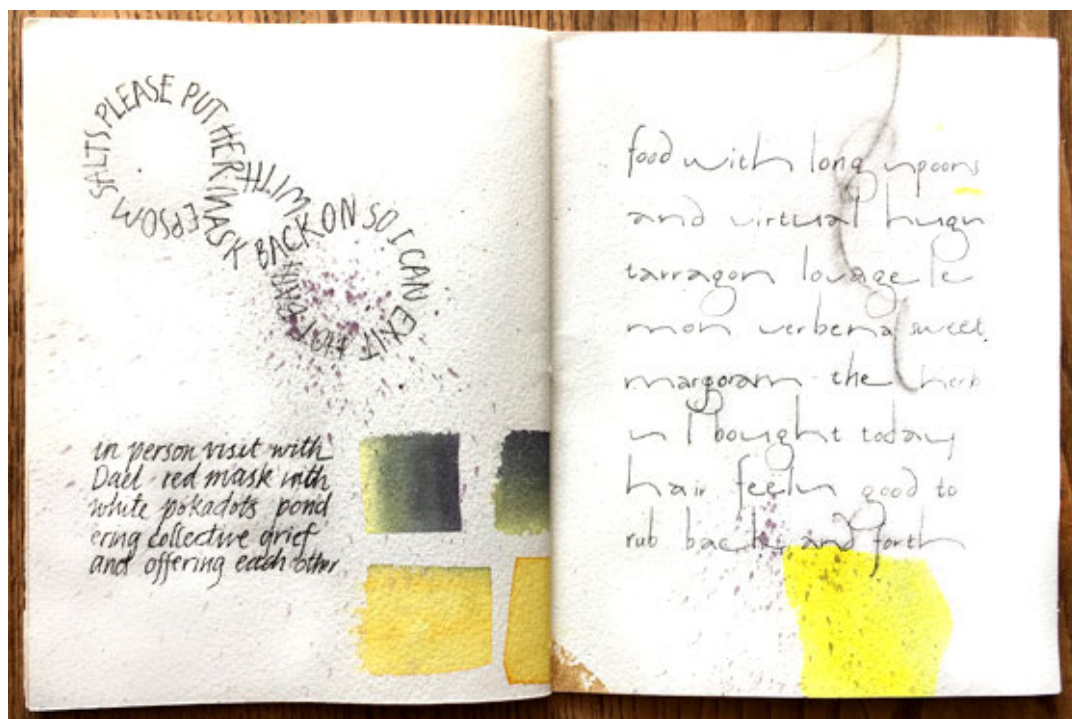 PLEASE PUT HER MASK BACK ON SO I CAN EXIT HOT BATH WITH EPSOM SALTS
in person visit with
Dael red mask with
white pokadots pond
ering collective grief
and offering each other
food with long spoons
and virtual hugs
tarragon lovage le
mon verbena sweet
margoram the herb
s I bought today
hair feels good to
rub back and forth